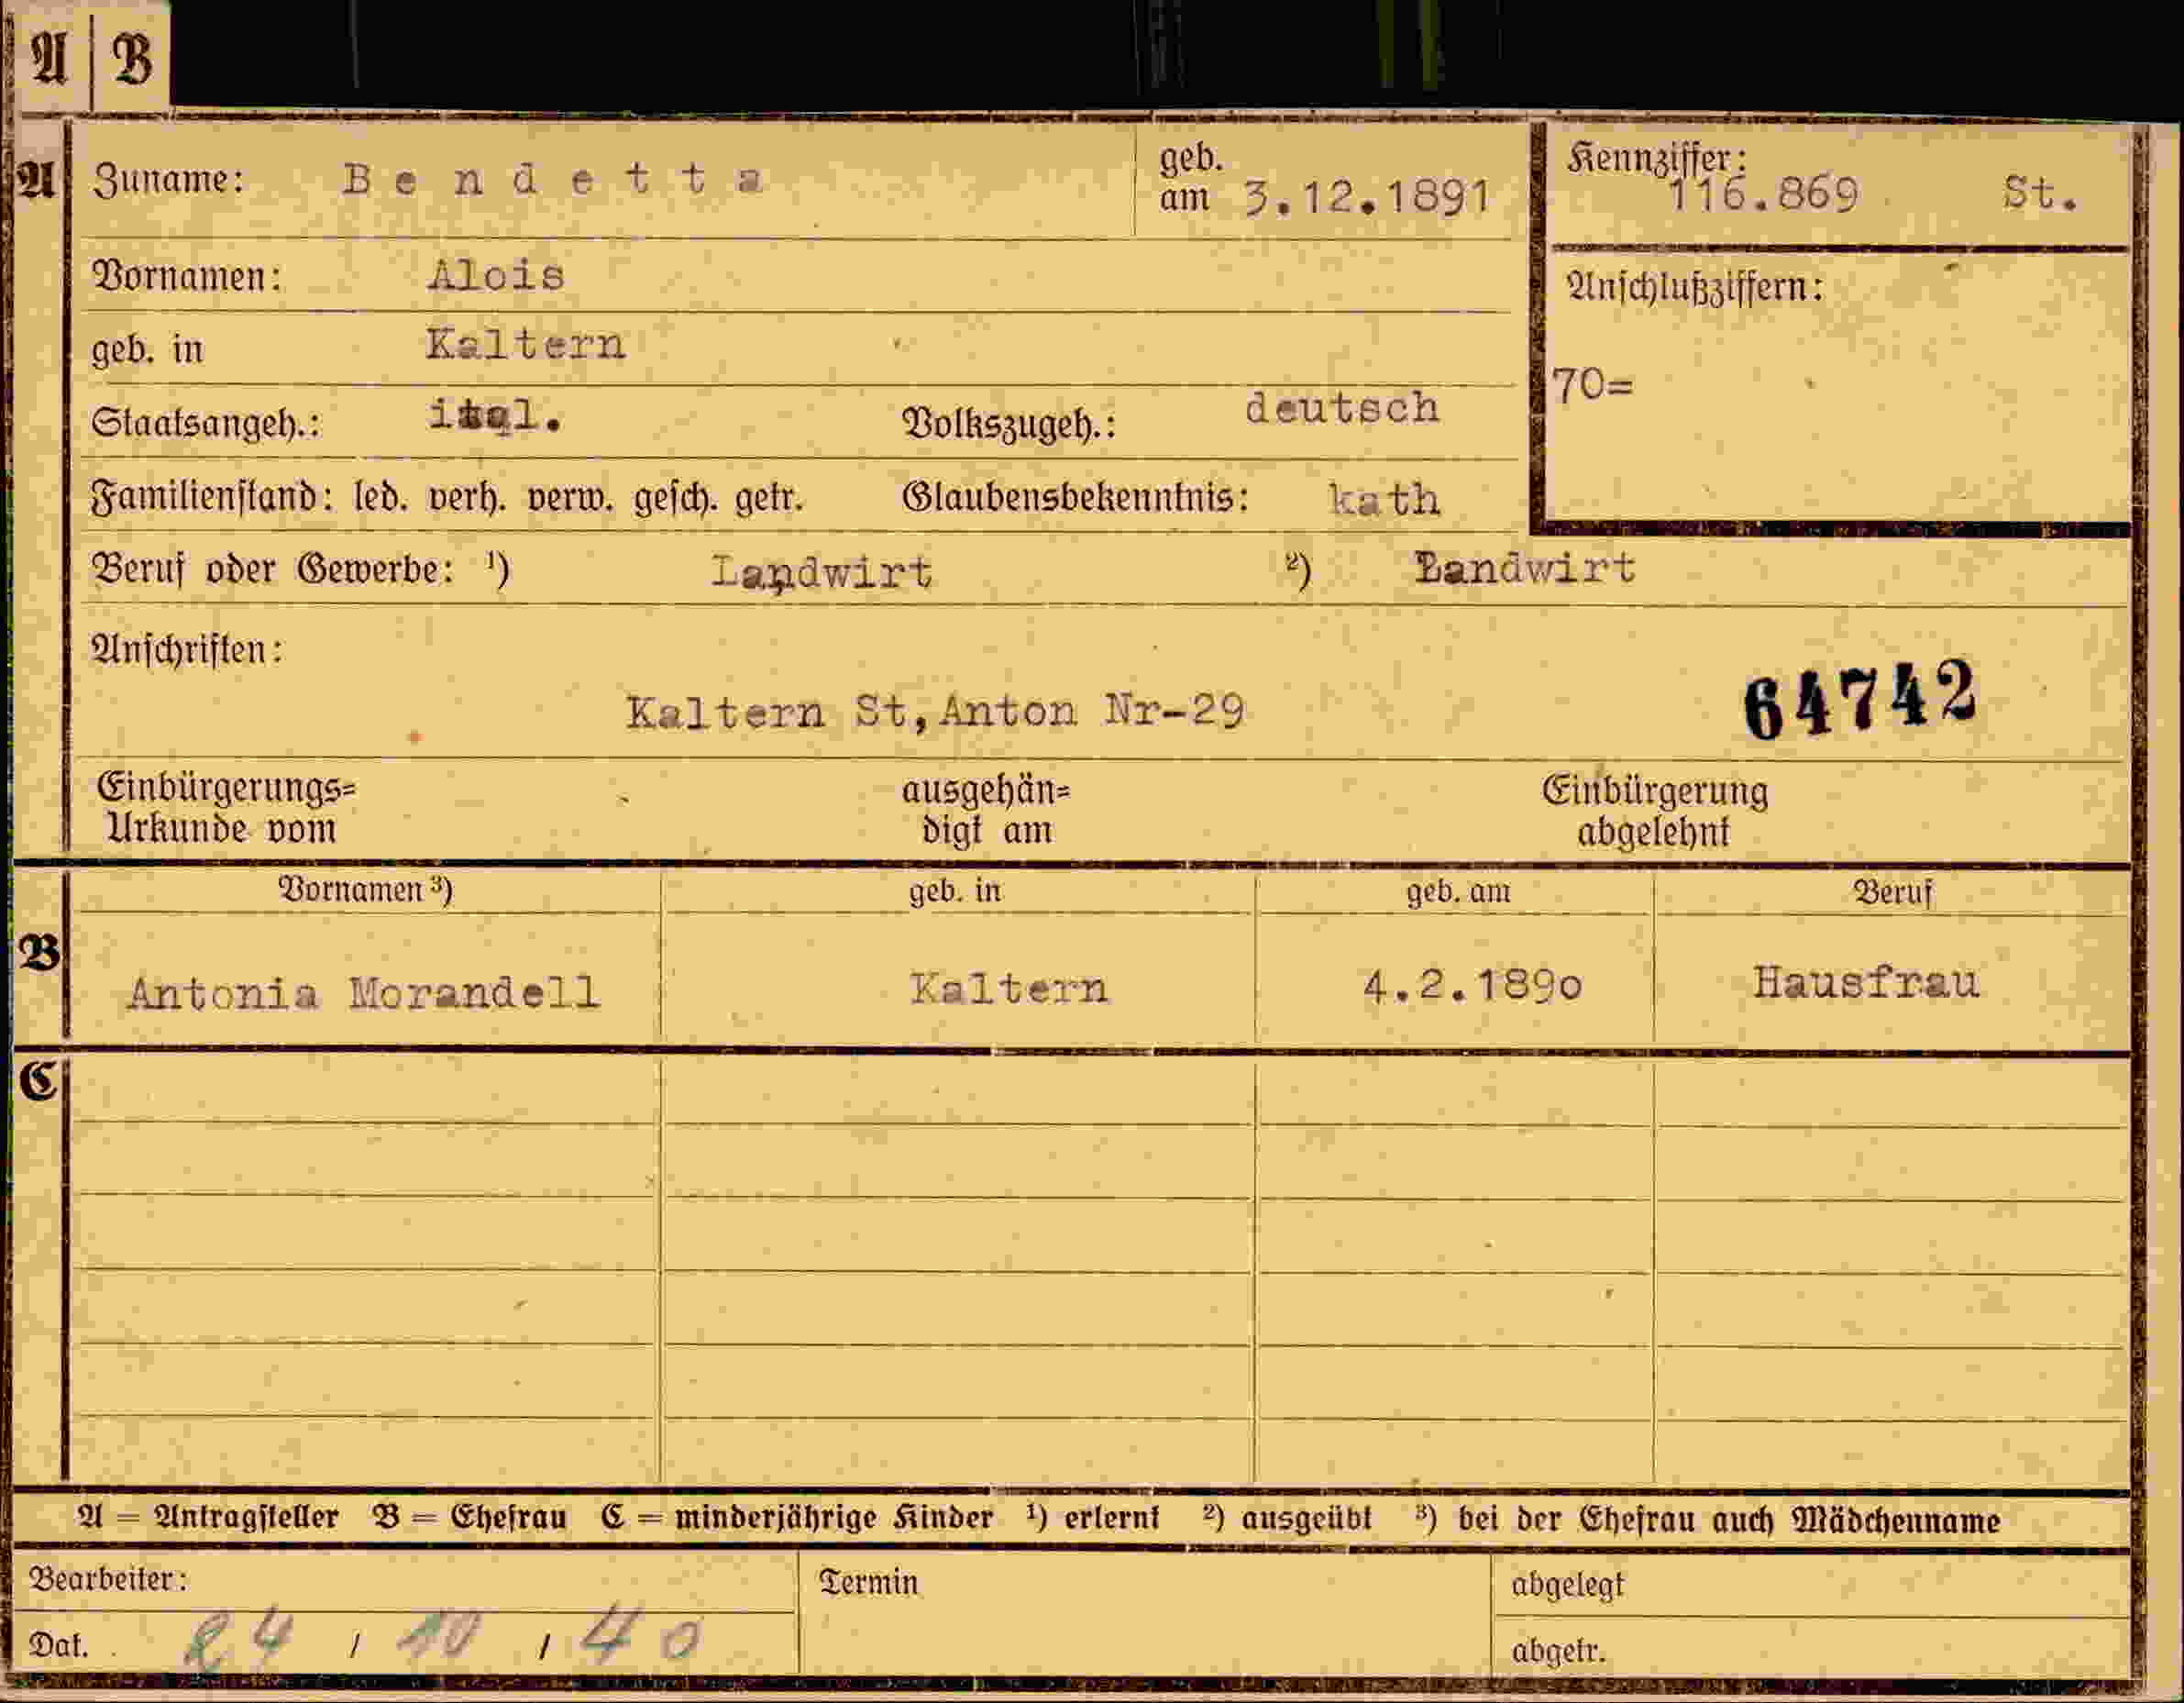 A | B
A Zuname: Bendetta geb. am 3.12.1891 Kennziffer: 116.869 St.
Vornamen: Alois Anschlußziffern:
geb. in Kaltern 70=
Staatsangeh.: ital. Volkszugeh.: deutsch
Familienstand: led. verh. verw. gesch. getr. Glaubensbekenntnis: kath
Beruf oder Gewerbe: ¹) Landwirt ²) Landwirt
Anschriften:
Kaltern St,Anton Nr-29 64742
Einbürgerungs= ausgehän= Einbürgerung
Urkunde vom digt am abgelehnt
Vornamen ³) geb. in geb. am Beruf
B Antonia Morandell Kaltern 4.2.189o Hausfrau
C
A = Antragsteller B = Ehefrau C = minderjährige Kinder ¹) erlernt ²) ausgeübt ³) bei der Ehefrau auch Mädchenname
Bearbeiter: Termin abgelegt
Dat. 24 / 10 / 40 abgetr.